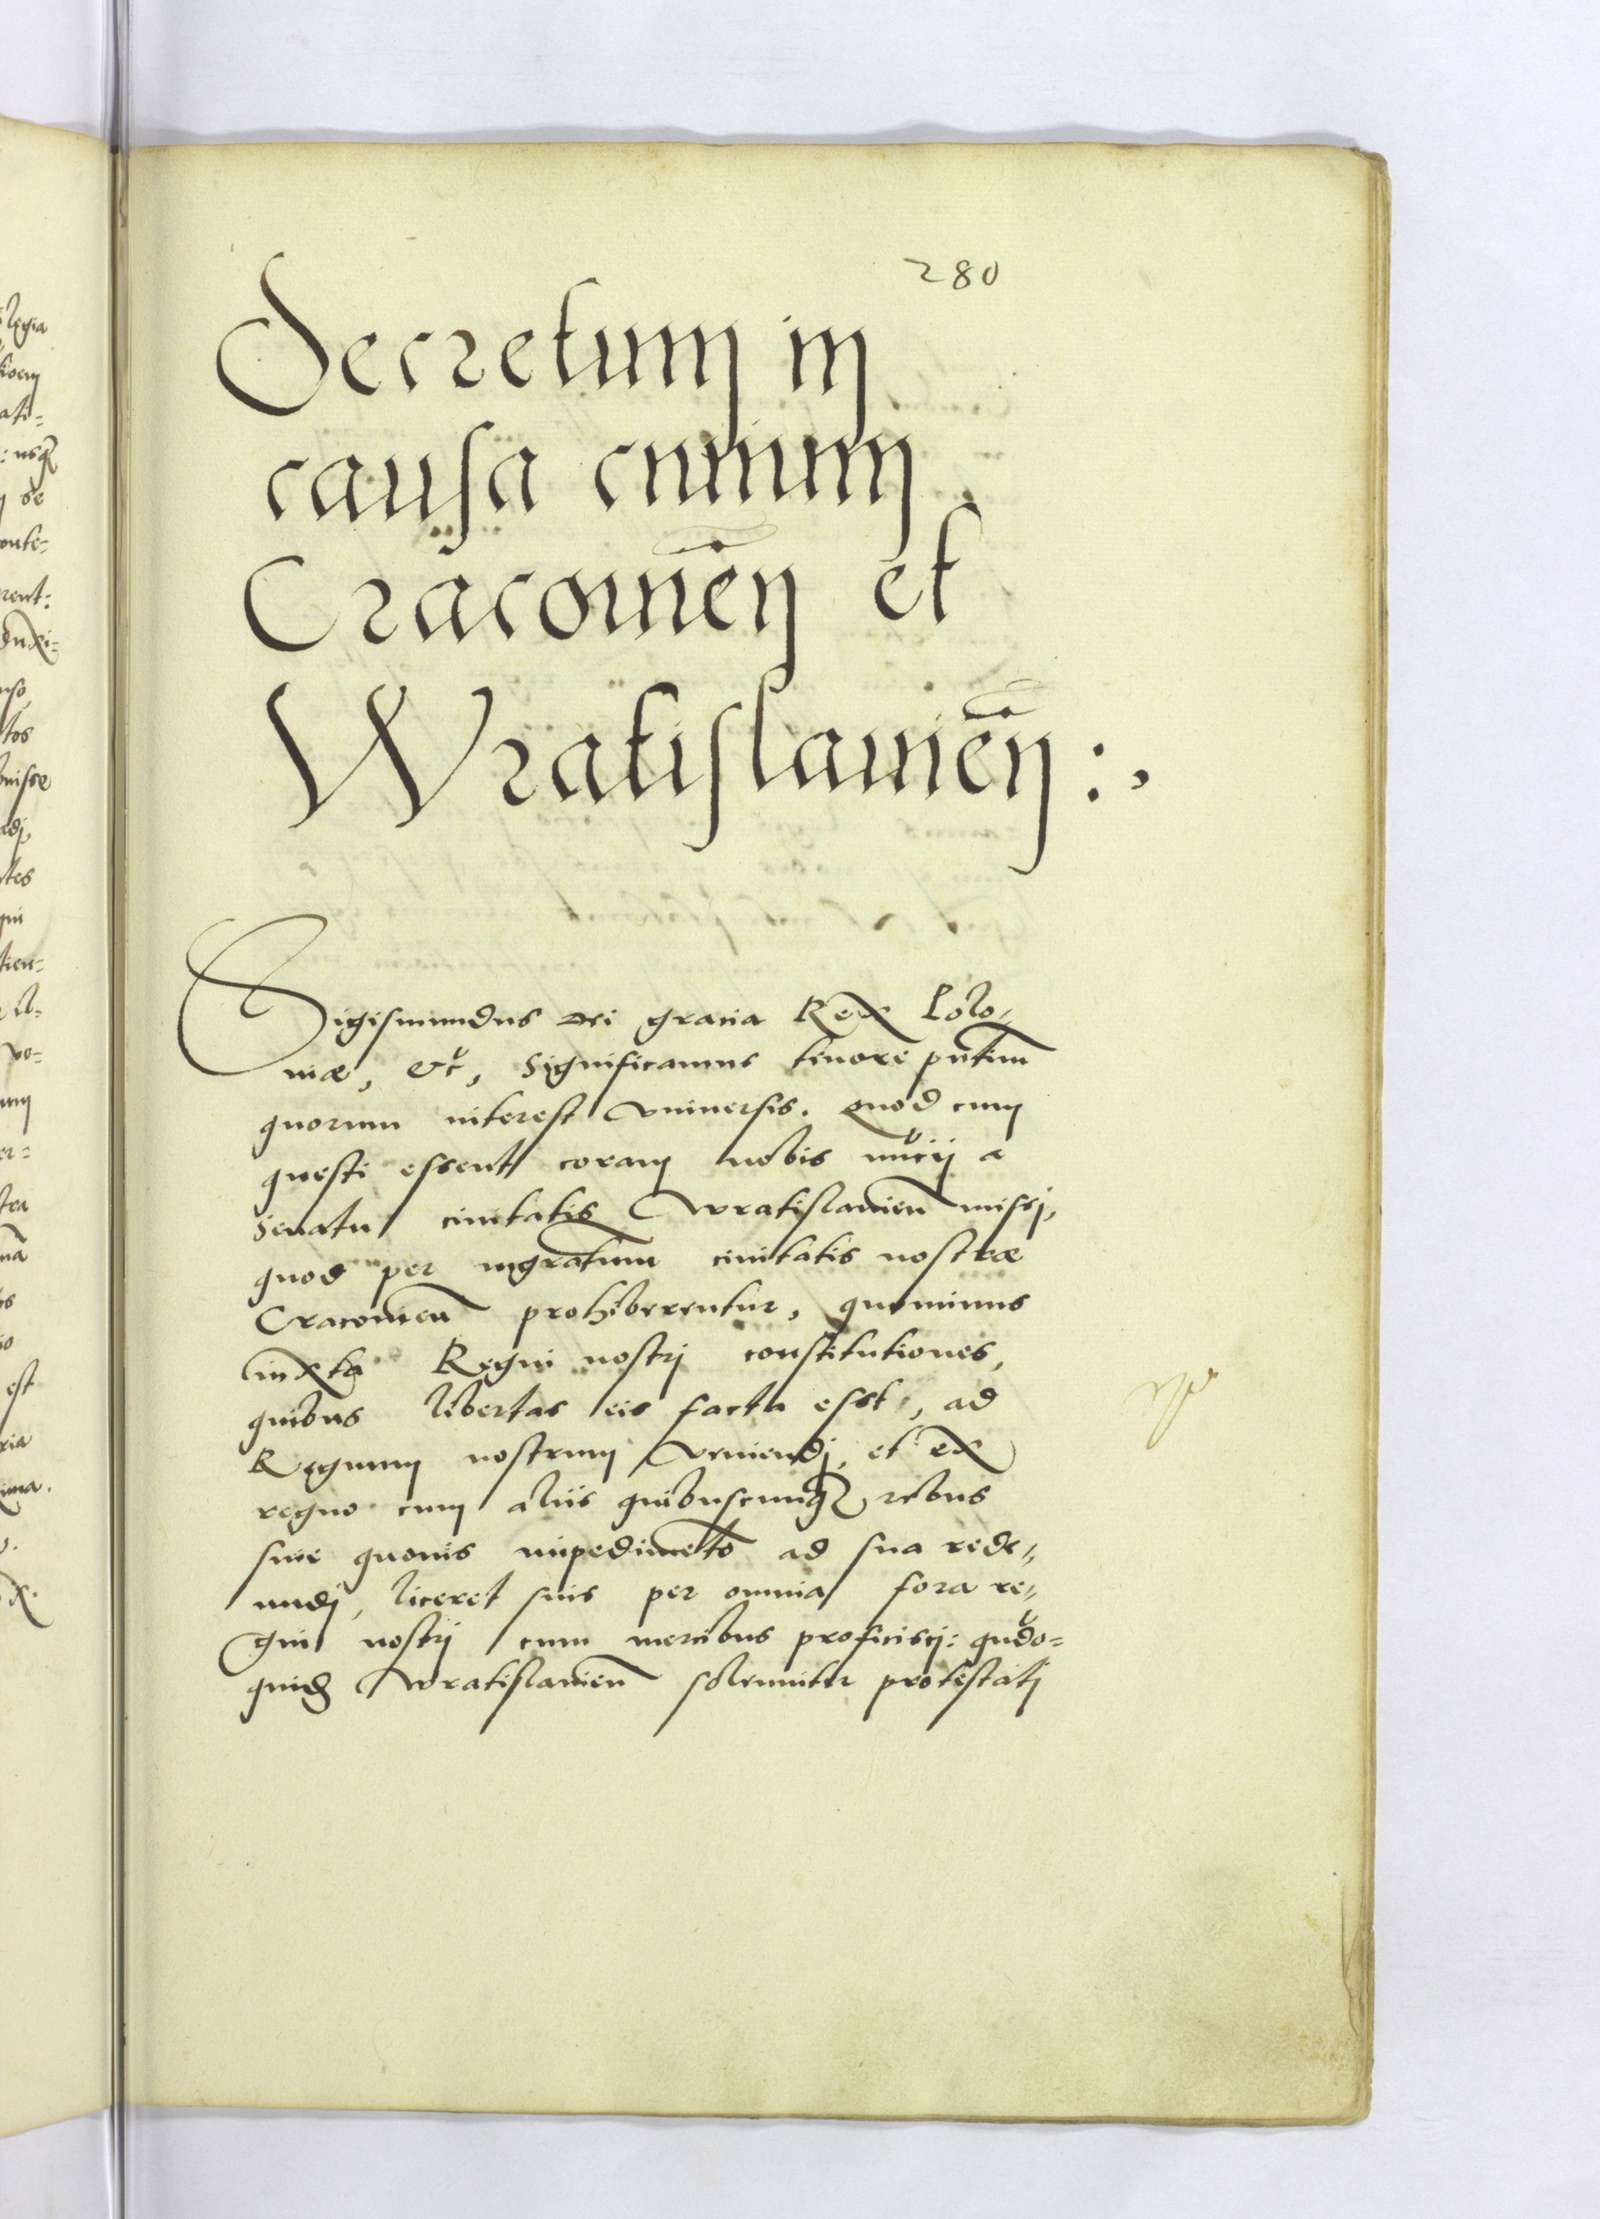 280
Decretum in
causa ciuium
Cracouien̄ et
Wratislauien̄ :,
Sigismundus dei gracia Rex Polo-
niæ, etc, Significamus tenore pn̄tium
quorum interest vniuersis. Quod cum
questi essent coram nobis nūcij a
Senatu ciuitatis Wratislauien̄ missj,
quod per mgr̄atum ciuitatis nostræ
Cracouien̄ prohiberentur, quominus
iuxta Regni nostrj constitutiones,
quibus libertas eis facta esset, ad
Regnum nostrum veniendj, et ex
regno cum aliis quibuscunqꝫ rebus
siue quouis impedimēto ad sua rede-
undj, liceret suis per omnia fora re-
gni nostrj cum mercibus proficiscj: qūdo=
quidē Wratislauien̄ solenniter protestatj